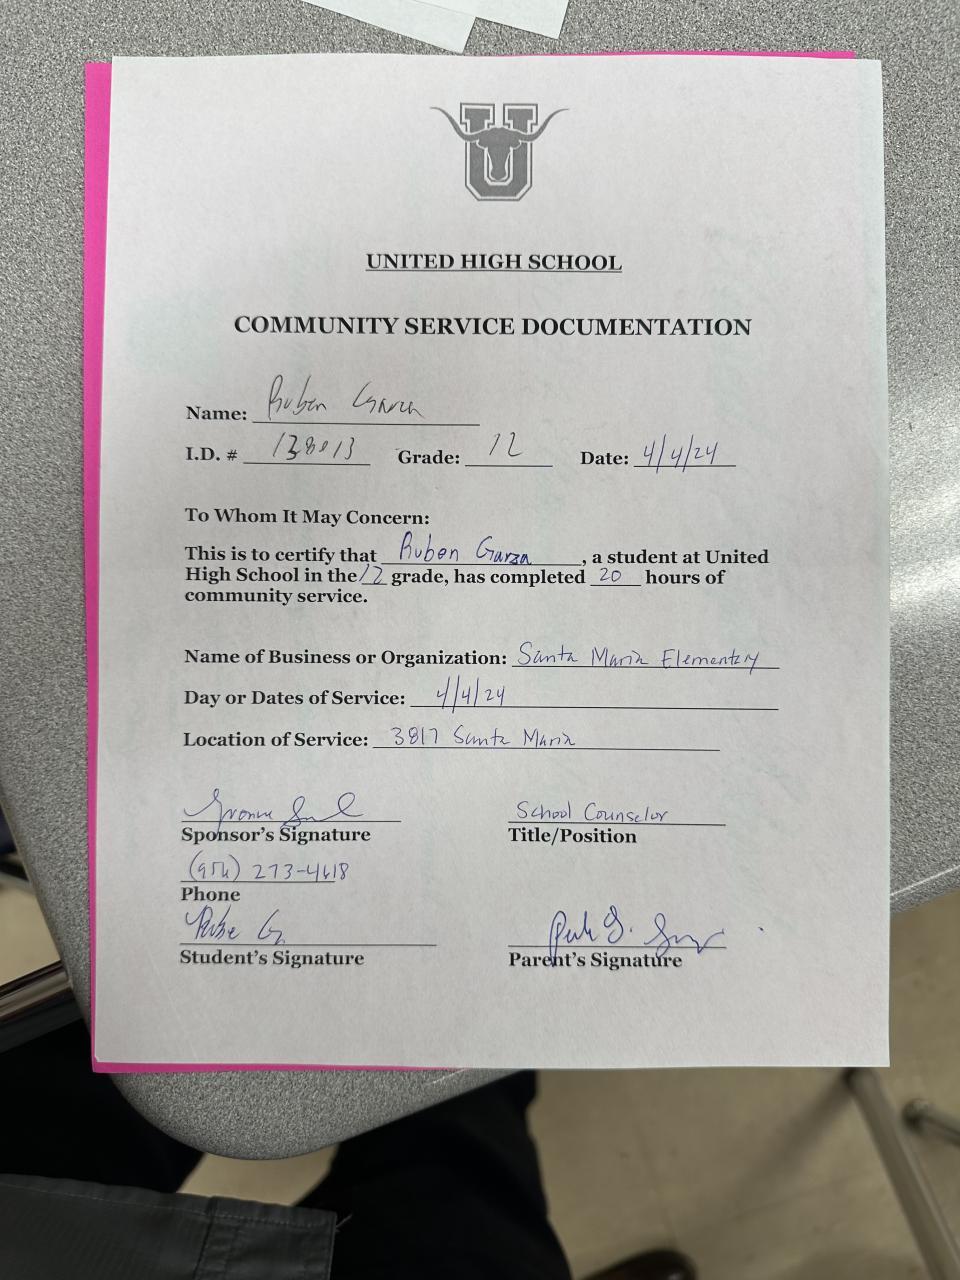 U
UNITED HIGH SCHOOL
COMMUNITY SERVICE DOCUMENTATION
Name: Ruben Garza
I.D. # 138013 Grade: 12 Date: 4/4/24
To Whom It May Concern:
This is to certify that Ruben Garza, a student at United
High School in the 12 grade, has completed 20 hours of
community service.
Name of Business or Organization: Santa Maria Elementary
Day or Dates of Service: 4/4/24
Location of Service: 3817 Santa Maria
School Counselor
Sponsor's Signature Title/Position
(956) 273-4618
Phone
Student's Signature Parent's Signature